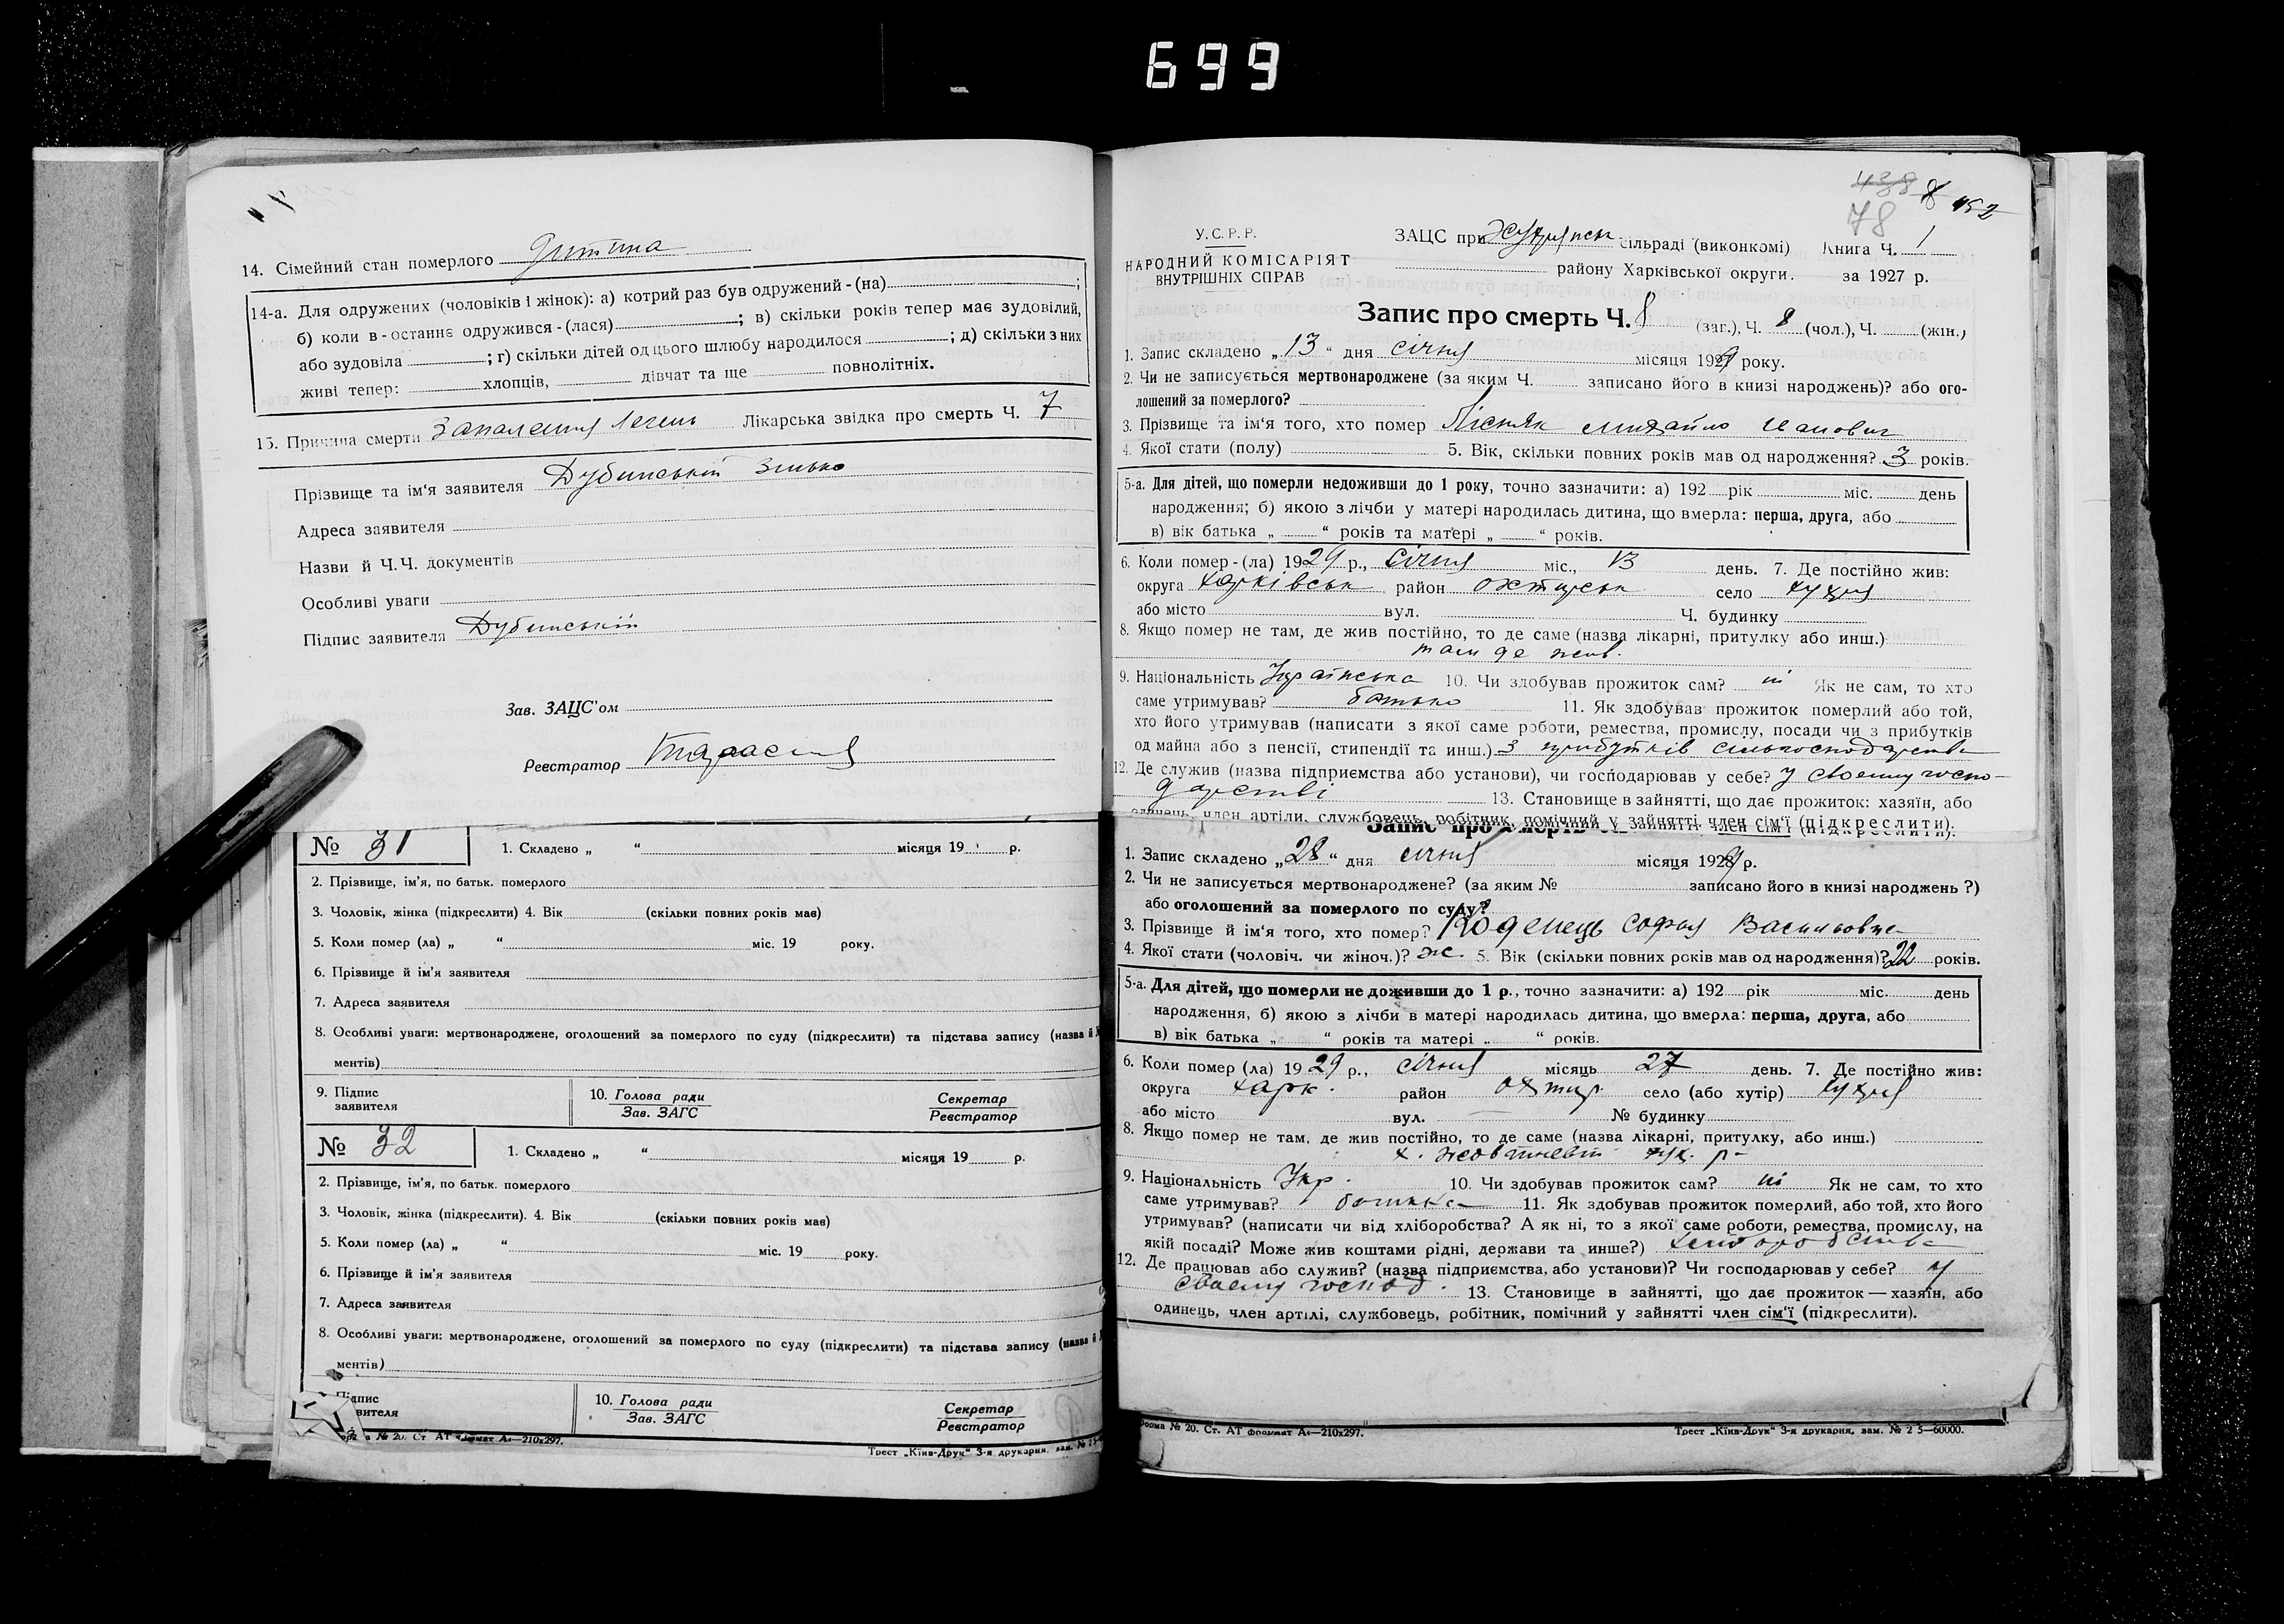 699
14. Сімейний стан померлого дитина
14-а. Для одружених (чоловіків і жінок): а) котрий раз був одружений-(на) ;
б) коли в-останнє одружився-(лася) ; в) скільки років тепер має зудовілий,
або зудовіла ; г) скільки дітей од цього шлюбу народилося ; д) скільки з них
живі тепер: хлопців, дівчат та ще повнолітніх.
15. Причина смерти Запалення легень Лікарська звідка про смерть Ч. 7
Прізвище та ім'я заявителя Дубинський
Адреса заявителя
Назви й Ч.Ч. документів
Особливі уваги
Підпис заявителя Дубинський
Зав. ЗАЦС'ом
Реєстратор
№ 31 1. Складено „ “ місяця 19 р.
2. Прізвище, ім'я, по батьк. померлого
3. Чоловік, жінка (підкреслити) 4. Вік (скільки повних років має)
5. Коли помер (ла) „ “ міс. 19 року.
6. Прізвище й ім'я заявителя
7. Адреса заявителя
8. Особливі уваги: мертвонароджене, оголошений за померлого по суду (підкреслити) та підстава запису (назва й
ментів)
9. Підпис заявителя 10. Голова ради Секретар
Зав. ЗАГС Реєстратор
№ 32 1. Складено „ “ місяця 19 р.
2. Прізвище, ім'я, по батьк. померлого
3. Чоловік, жінка (підкреслити). 4. Вік (скільки повних років має)
5. Коли помер (ла) „ “ міс. 19 року.
6. Прізвище й ім'я заявителя
7. Адреса заявителя
8. Особливі уваги: мертвонароджене, оголошений за померлого по суду (підкреслити) та підстава запису (назва й
ментів)
10. Голова ради Секретар
Зав. ЗАГС Реєстратор
№ 20. Ст. АТ формат А4—210х297.
Трест „Київ-Друк" 3-я друкарня, зам. №
438 8 152
78
У.С.Р.Р.
НАРОДНИЙ КОМІСАРІЯТ
ВНУТРІШНІХ СПРАВ
ЗАЦС при сільраді (виконкомі) Книга Ч. 1
району Харківської округи. за 1927 р.
Запис про смерть Ч. 8 (заг.), Ч. 8 (чол.), Ч. (жін.)
1. Запис складено „13“ дня січня місяця 1929 року.
2. Чи не записується мертвонароджене (за яким Ч. записано його в книзі народжень)? або ого-
лошений за померлого?
3. Прізвище та ім'я того, хто помер Лісняк Михайло
4. Якої стати (полу) 5. Вік, скільки повних років мав од народження? 3 років.
5-а. Для дітей, що померли недоживши до 1 року, точно зазначити: а) 192 рік міс. день
народження; б) якою з лічби у матері народилась дитина, що вмерла: перша, друга, або
в) вік батька „ “ років та матері „ “ років.
6. Коли помер-(ла) 1929 р., січня міс., 13 день. 7. Де постійно жив:
округа Харківськ район Охтирськ село
або місто вул. Ч. будинку
8. Якщо помер не там, де жив постійно, то де саме (назва лікарні, притулку або инш.)
там де жив.
9. Національність Українська 10. Чи здобував прожиток сам? ні Як не сам, то хто
саме утримував? батько 11. Як здобував прожиток померлий або той,
хто його утримував (написати з якої саме роботи, ремества, промислу, посади чи з прибутків
од майна або з пенсії, стипендії та инш.) з прибутків сільгосподарства
12. Де служив (назва підприємства або установи), чи господарював у себе? у своєму госпо-
дарстві 13. Становище в зайнятті, що дає прожиток: хазяїн, або
одинець, член артіли, службовець, робітник, помічний у зайнятті член сім'ї (підкреслити).
Запис про смерть
1. Запис складено „28“ дня січня місяця 1929 р.
2. Чи не записується мертвонароджене? (за яким № записано його в книзі народжень ?)
або оголошений за померлого по суду?
3. Прізвище й ім'я того, хто помер? Софія Василовна
4. Якої стати (чоловіч. чи жіноч.)? ж. 5. Вік (скільки повних років мав од народження)? 22 років.
5-а. Для дітей, що померли не доживши до 1 р., точно зазначити: а) 192 рік міс. день
народження, б) якою з лічби в матері народилась дитина, що вмерла: перша, друга, або
в) вік батька „ “ років та матері „ “ років.
6. Коли помер (ла) 1929 р., січня місяць 27 день. 7. Де постійно жив:
округа Харк. район Охтир село (або хутір)
або місто вул. — № будинку
8. Якщо помер не там, де жив постійно, то де саме (назва лікарні, притулку, або инш.)
9. Національність Укр. 10. Чи здобував прожиток сам? ні Як не сам, то хто
саме утримував? батько 11. Як здобував прожиток померлий, або той, хто його
утримував? (написати чи від хліборобства? А як ні, то з якої саме роботи, ремества, промислу, на
якій посаді? Може жив коштами рідні, держави та инше?) хліборобства
12. Де працював або служив? (назва підприємства, або установи)? Чи господарював у себе? у
своєму господ. 13. Становище в зайнятті, що дає прожиток — хазяїн, або
одинець, член артілі, службовець, робітник, помічний у зайнятті член сім'ї (підкреслити).
Форма № 20. Ст. АТ формат А4—210х297.
Трест „Київ-Друк" 3-я друкарня, зам. № 2 5—60000.